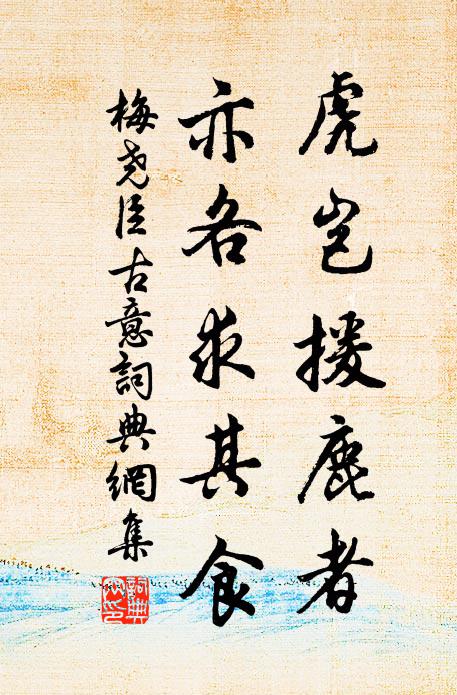 虎岂援鹿者
亦各求其食
梅尧臣古意詞典網集